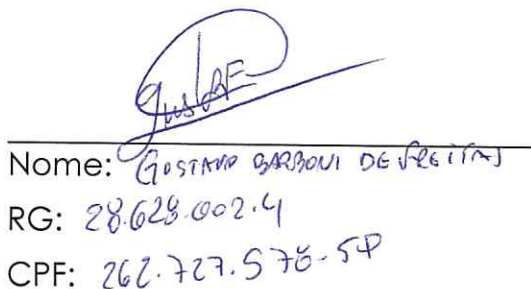 Nome: GUSTAVO BARBONI DE FREITAS
RG: 28.628.002.4
CPF: 262.727.578-58